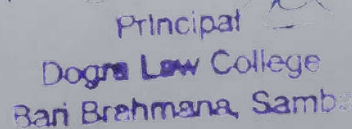 Principal
Dogra Law College
Bari Brahmana, Samb